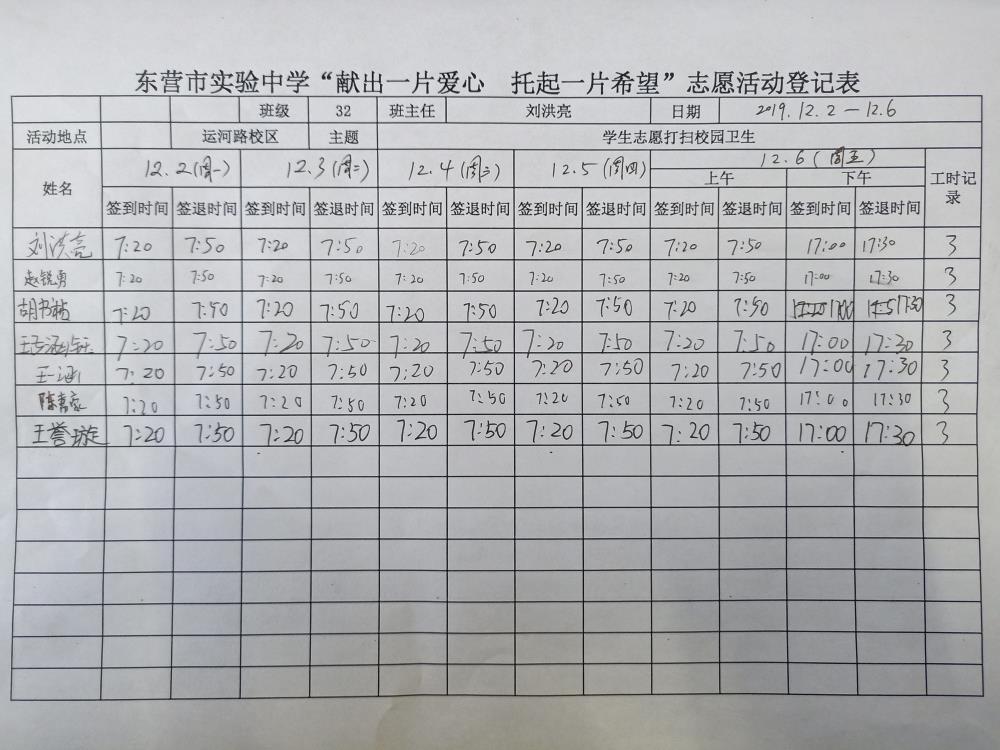 东营市实验中学“献出一片爱心 托起一片希望”志愿活动登记表
班级 32 班主任 刘洪亮 日期 2019.12.2—12.6
活动地点 运河路校区 主题 学生志愿打扫校园卫生
姓名 12.2(周一) 12.3(周二) 12.4(周三) 12.5(周四) 12.6(周五) 工时记录
上午 下午
签到时间 签退时间 签到时间 签退时间 签到时间 签退时间 签到时间 签退时间 签到时间 签退时间 签到时间 签退时间
刘洪亮 7:20 7:50 7:20 7:50 7:20 7:50 7:20 7:50 7:20 7:50 17:00 17:30 3
赵锐勇 7:20 7:50 7:20 7:50 7:20 7:50 7:20 7:50 7:20 7:50 17:00 17:30 3
胡书 7:20 7:50 7:20 7:50 7:20 7:50 7:20 7:50 7:20 7:50 17:00 17:30 3
7:20 7:50 7:20 7:50 7:20 7:50 7:20 7:50 7:20 7:50 17:00 17:30 3
王一涵 7:20 7:50 7:20 7:50 7:20 7:50 7:20 7:50 7:20 7:50 17:00 17:30 3
陈 7:20 7:50 7:20 7:50 7:20 7:50 7:20 7:50 7:20 7:50 17:00 17:30 3
王誉璇 7:20 7:50 7:20 7:50 7:20 7:50 7:20 7:50 7:20 7:50 17:00 17:30 3